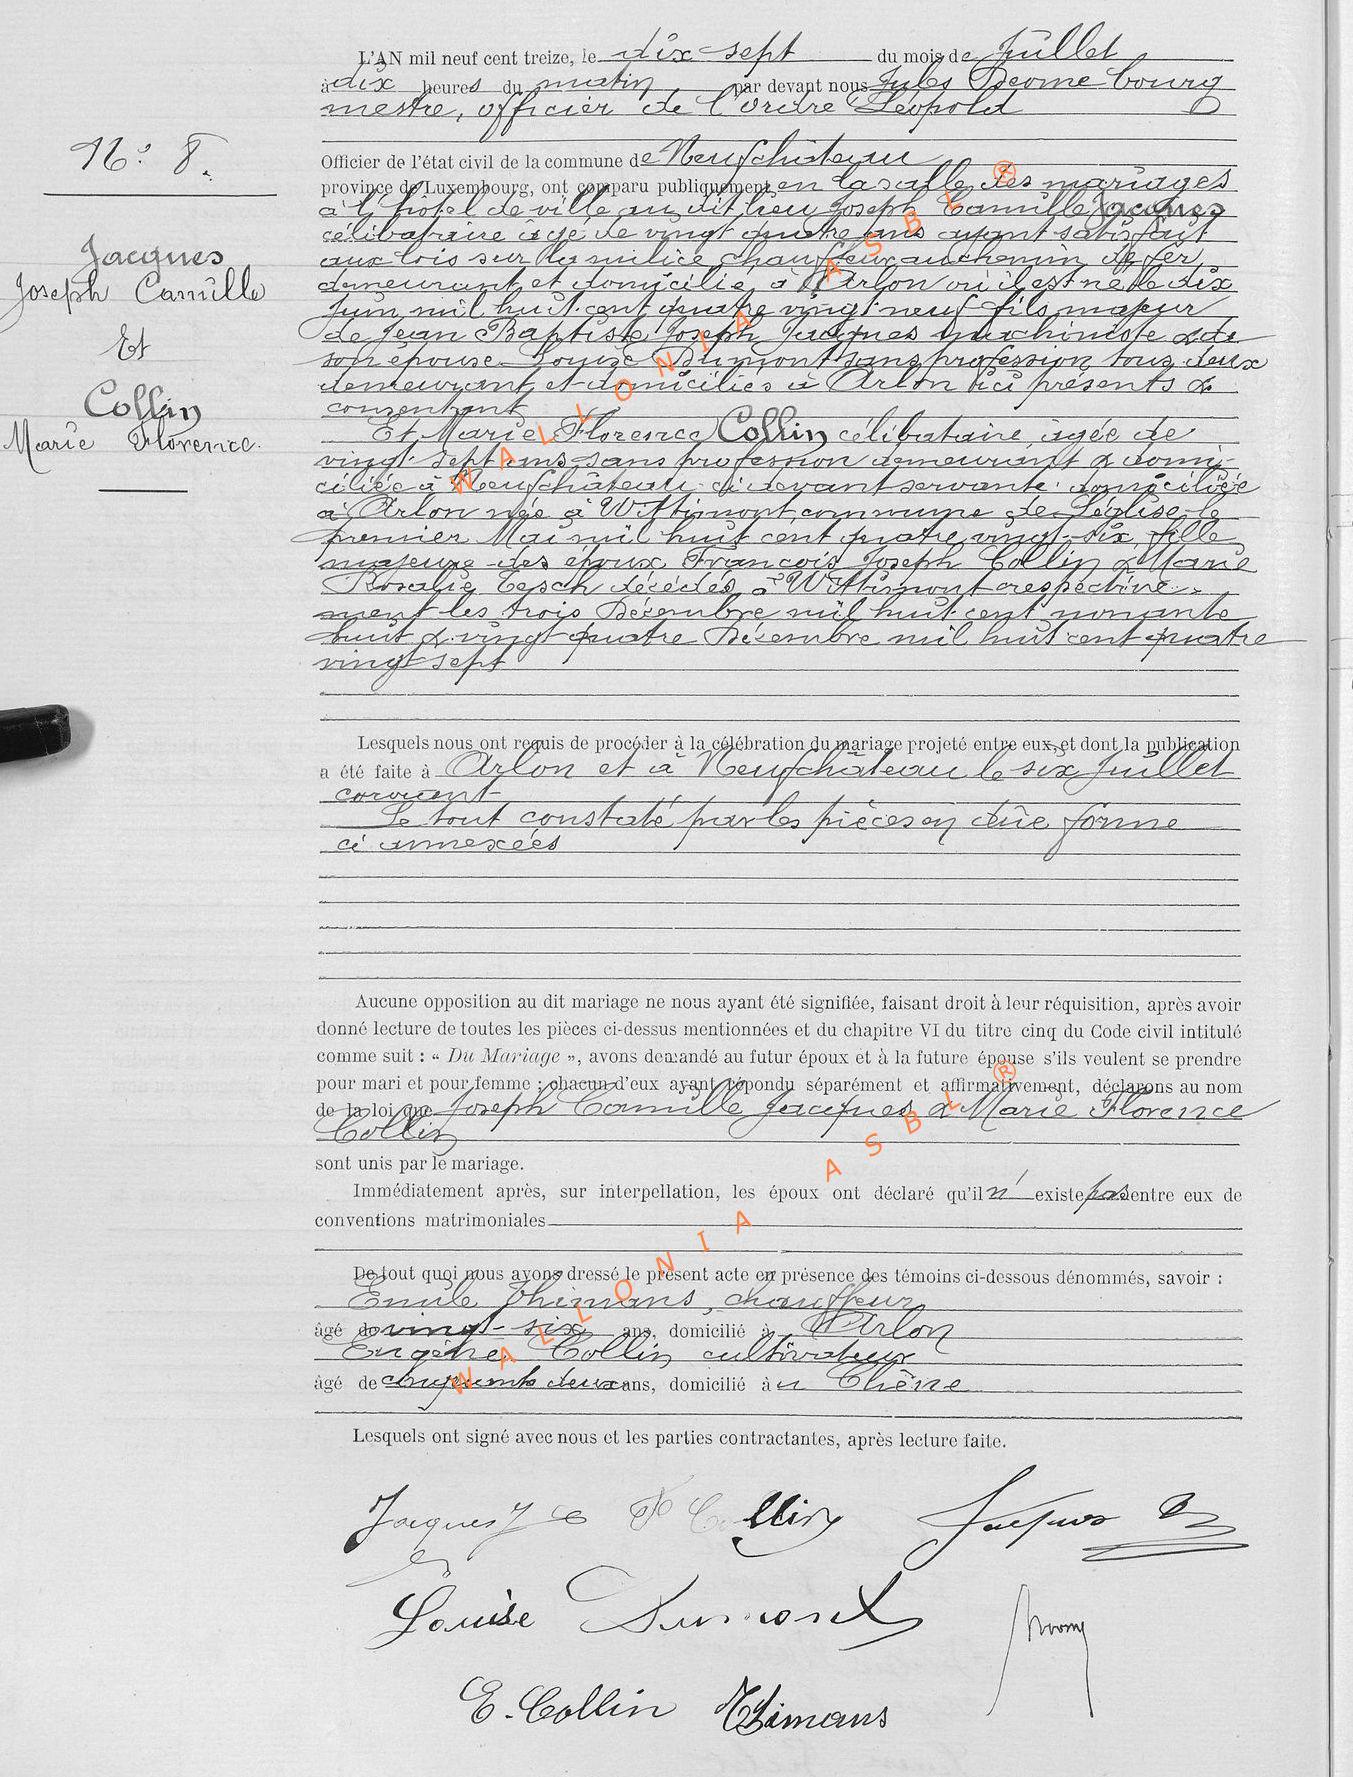 L'AN mil neuf cent treize, le dix-sept du mois de Juillet
à dix heures du matin par devant nous Jules bourg
mestre, officier de l'ordre Léopold
N° 8.
Officier de l'état civil de la commune de Neufchâteau
province de Luxembourg, ont comparu publiquement en la salle des mariages
à l'hôtel de ville au dit lieu Joseph Camille Jacques
célibataire âgé de vingt quatre ans ayant satisfait
aux lois sur la milice chauffeur au chemin de fer
demeurant et domicilié à Arlon où il est né le dix
Juin mil huit cent quatre vingt neuf fils majeur
de Jean Baptiste Joseph Jacques machiniste & de
son épouse Louise Dumont sans profession tous deux
demeurant et domiciliés à Arlon ici présents &
consentant
Jacques
Joseph Camille
Et
Collin
Marie Florence.
Et Marie Florence Collin célibataire âgée de
vingt-sept ans sans profession demeurant & domi-
ciliée à Neufchâteau ci devant servante domiciliée
à Arlon née à Wittimont, commune de Léglise le
premier Mai mil huit cent quatre vingt-six, fille
majeure des époux François Joseph Collin & Marie
Rosalie Tesch décédés à Wittimont respective-
ment les trois Décembre mil huit cent nonante
huit & vingt quatre Décembre mil huit cent quatre
vingt sept
Lesquels nous ont requis de procéder à la célébration du mariage projeté entre eux, et dont la publication
a été faite à Arlon et à Neufchâteau le six Juillet
courant
Le tout constaté par les pièces en dûe forme
ci annexées
Aucune opposition au dit mariage ne nous ayant été signifiée, faisant droit à leur réquisition, après avoir
donné lecture de toutes les pièces ci-dessus mentionnées et du chapitre VI du titre cinq du Code civil intitulé
comme suit : « Du Mariage », avons demandé au futur époux et à la future épouse s'ils veulent se prendre
pour mari et pour femme ; chacun d'eux ayant répondu séparément et affirmativement, déclarons au nom
de la loi que Joseph Camille Jacques & Marie Florence
Collin
sont unis par le mariage.
Immédiatement après, sur interpellation, les époux ont déclaré qu'il n' existe pas entre eux de
conventions matrimoniales
De tout quoi nous avons dressé le présent acte en présence des témoins ci-dessous dénommés, savoir :
Emile Thimans, chauffeur
âgé de vingt-six ans, domicilié à Arlon
Eugène Collin cultivateur
âgé de cinquante deux ans, domicilié à Chêne
Lesquels ont signé avec nous et les parties contractantes, après lecture faite.
Jacques J C F Collin Jacques
Louise Dumont
E. Collin Thimans
WALLONIA ASBL ®
WALLONIA ASBL ®